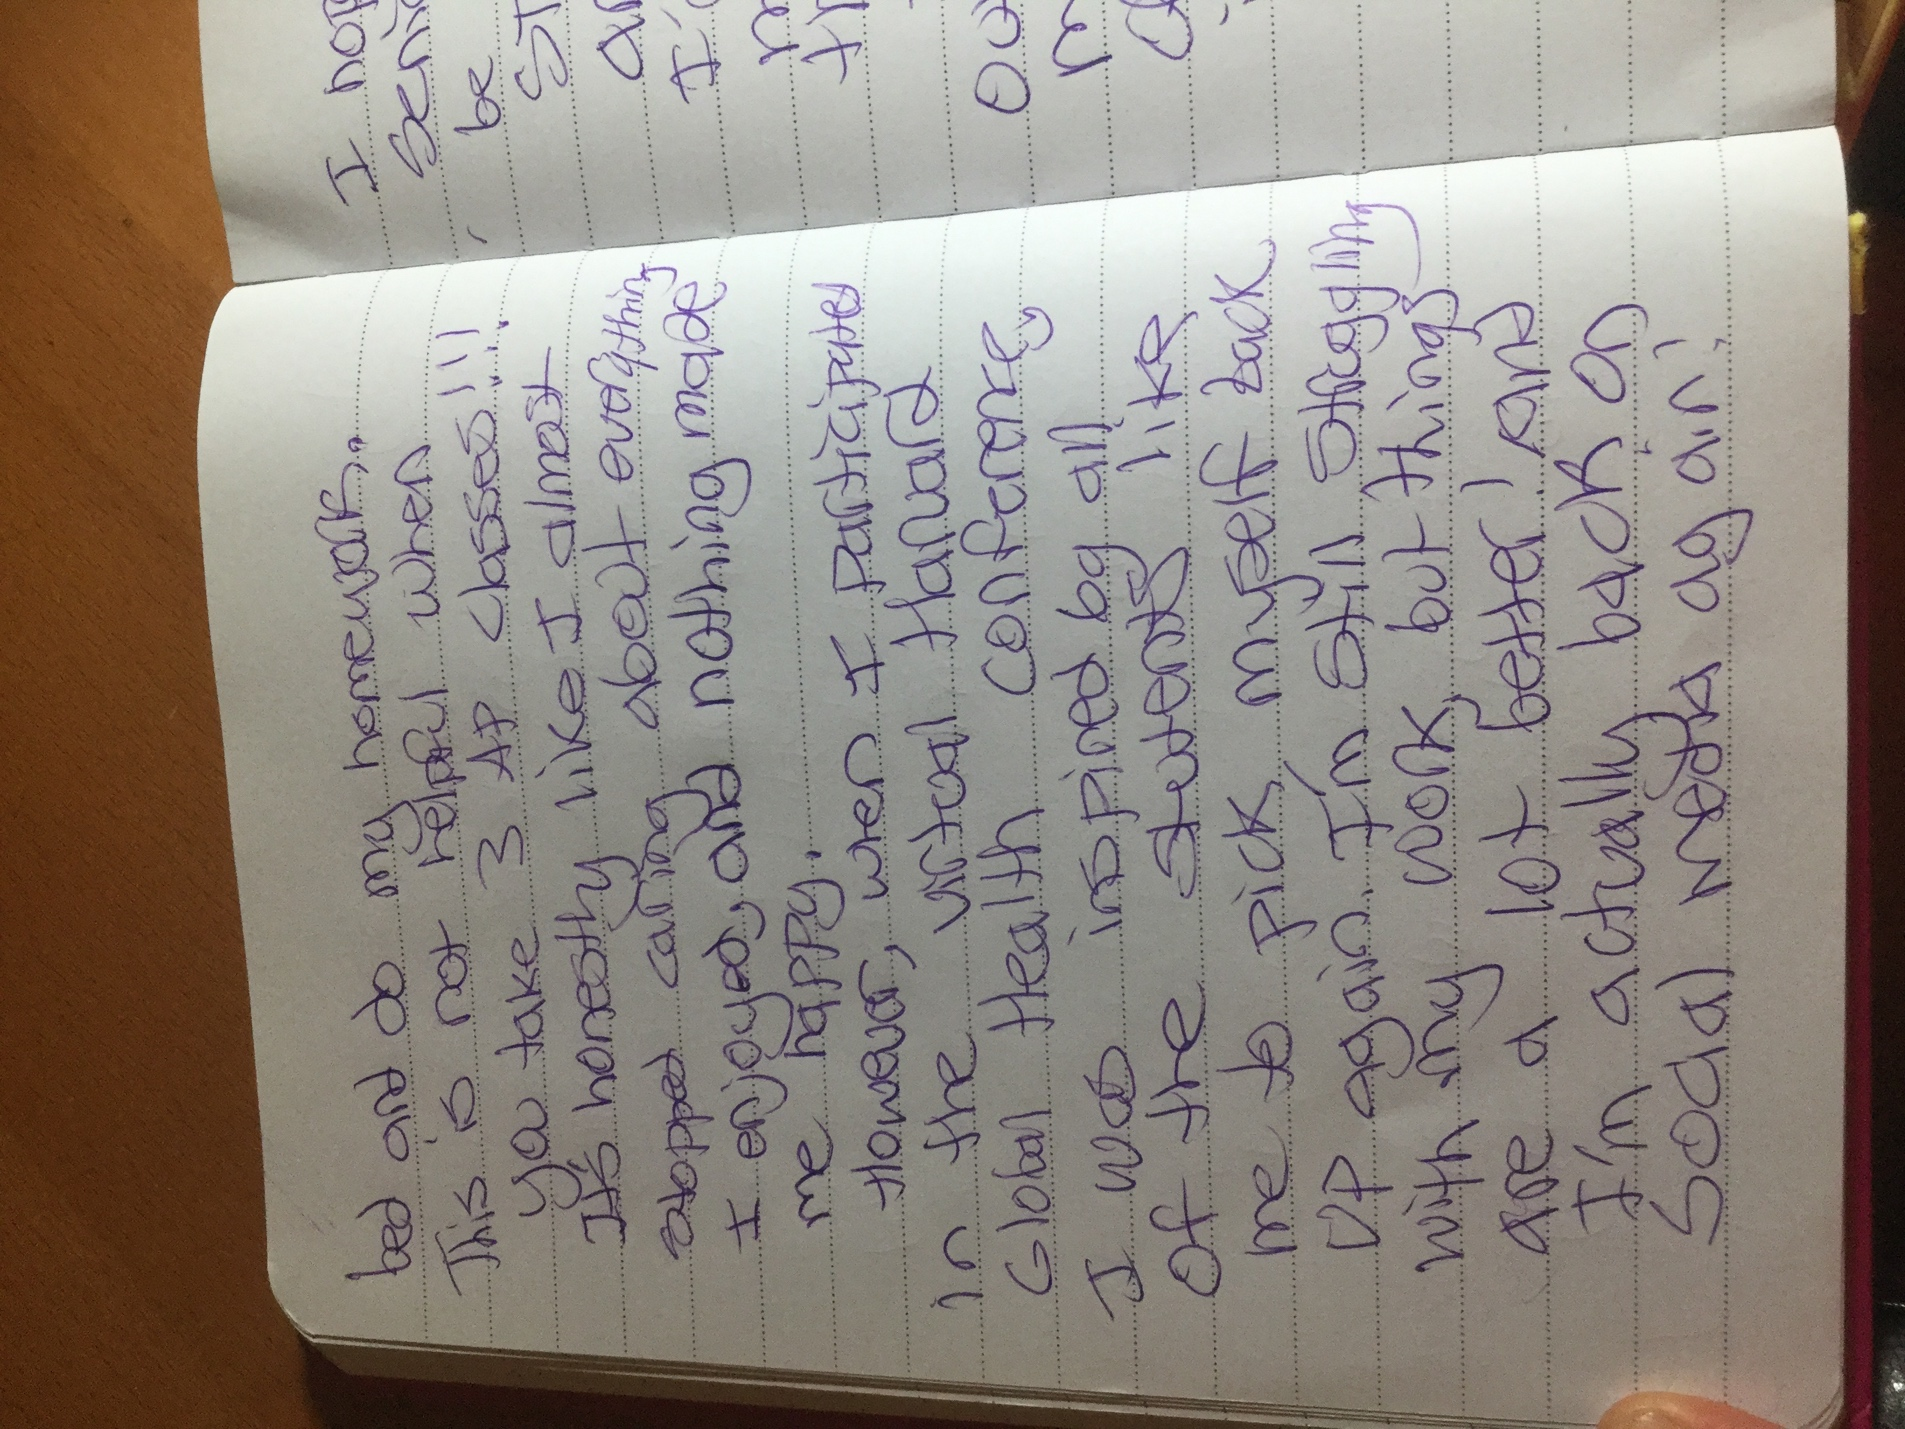 bed and do my homework..
This is not helpful when
you take 3 AP classes!!!.
It's honestly like I almost
stopped caring about everything
I enjoyed, and nothing made
me happy.
However, when I participated
in the virtual Harvard
Global Health Conference,
I was inspired by all
of the students like
me to pick myself back
up again. I'm still struggling
with my work but things
are a lot better! and
I'm actually back on
Social media again!
I
be
ST
I